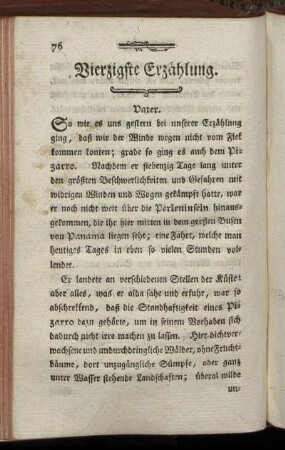 76
Vierzigste Erzählung.
Vater.
So wir es uns gestern bei unserer Erzählung
ging, daß wir der Winde wegen nicht vom Flek
kommen konten; grade so ging es auch dem Pi-
zarro. Nachdem er siebenzig Tage lang unter
den größten Beschwerlichkeiten und Gefahren mit
widrigen Winden und Wogen gekämpft hatte, war
er noch nicht weit über die Perleninseln hinaus-
gekommen, die ihr hier mitten in dem großen Busen
von Panama liegen seht; eine Fahrt, welche man
heutiges Tages in eben so vielen Stunden vol-
lendet.
Er landete an verschiedenen Stellen der Küste-
aber alles, was er alda sahe und erfuhr, war so
abschrekkend, daß die Standhaftigkeit eines Pi-
zarro dazu gehörte, um in seinem Vorhaben sich
dadurch nicht irre machen zu lassen. Hier dichtver-
wachsene und undurchdringliche Wälder, ohne Frucht-
bäume, dort unzugängliche Sümpfe, oder ganz
unter Wasser stehende Landschaften; überal wilde
un-